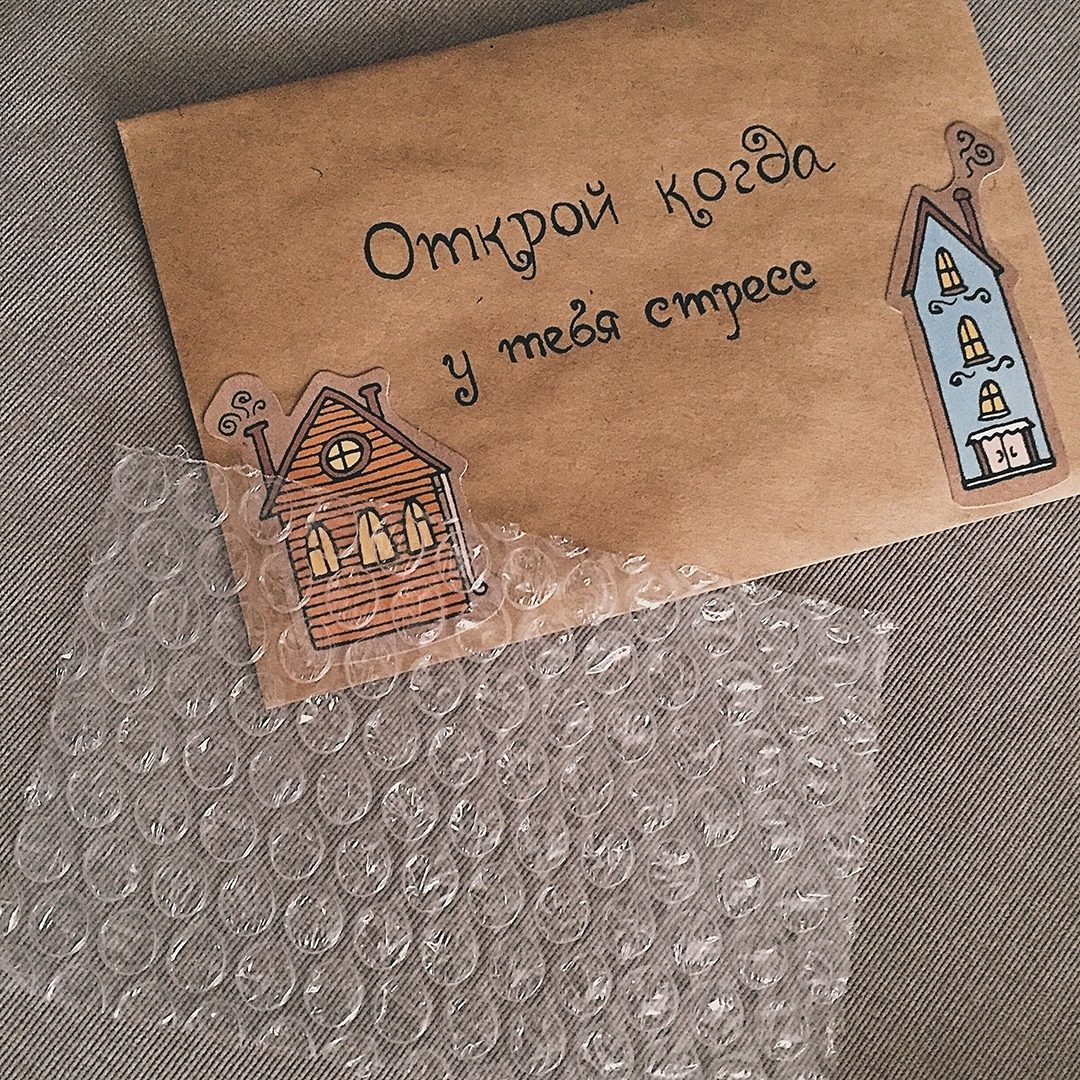 Открой когда
у тебя стресс